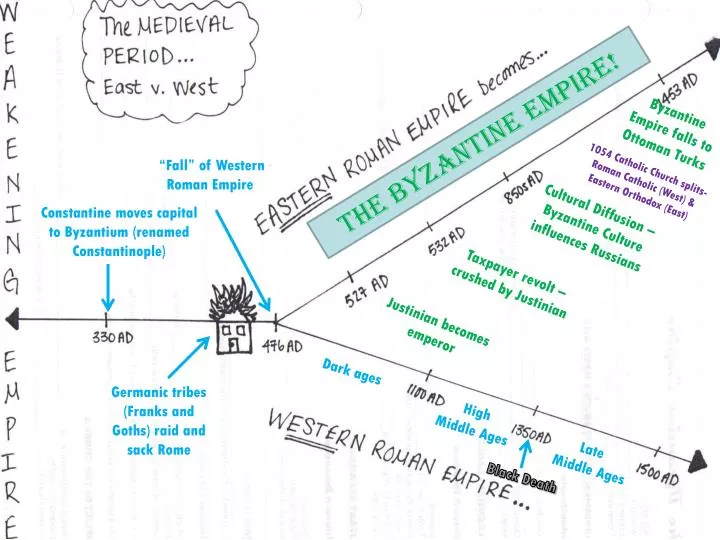 WEAKENING EMPIRE
The MEDIEVAL
PERIOD...
East v. West
EASTERN ROMAN EMPIRE becomes...
THE BYZANTINE EMPIRE!
1453 AD
Byzantine
Empire falls to
Ottoman Turks
1054 Catholic Church splits-
Roman Catholic (West) &
Eastern Orthodox (East)
850s AD
Cultural Diffusion –
Byzantine Culture
influences Russians
532 AD
Taxpayer revolt –
crushed by Justinian
527 AD
Justinian becomes
emperor
“Fall” of Western
Roman Empire
Constantine moves capital
to Byzantium (renamed
Constantinople)
330 AD
476 AD
Germanic tribes
(Franks and
Goths) raid and
sack Rome
Dark ages
1100 AD
High
Middle Ages
1350AD
Black Death
Late
Middle Ages
1500 AD
WESTERN ROMAN EMPIRE...